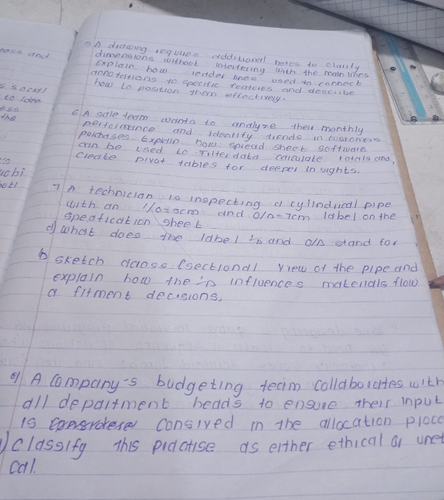 5. A drawing requires additional notes to clarify
dimensions without interfering with the main lines
Explain how leader lines used to connect
annotations to specific features and describe
how to position them effectively.
6. A sale team wants to analyze their monthly
performance and identify trends in customers
purchases. Explain how spread sheet software
can be used to filter data calculate totals and
create pivot tables for deeper in sights.
7. A technician is inspecting a cylindrical pipe
with an I/D=5cm and O/D=7cm label on the
specification sheet
a) what does the label I/D and O/D stand for
b. sketch across (sectional view of the pipe and
explain how the I/D influences materials flow
a fitment decisions.
8) A company's budgeting team collaborates with
all department heads to ensure their input
is consived in the allocation proce
a) Classify this practise as either ethical or unet
cal.
ess and
s social
to iden
ess
the